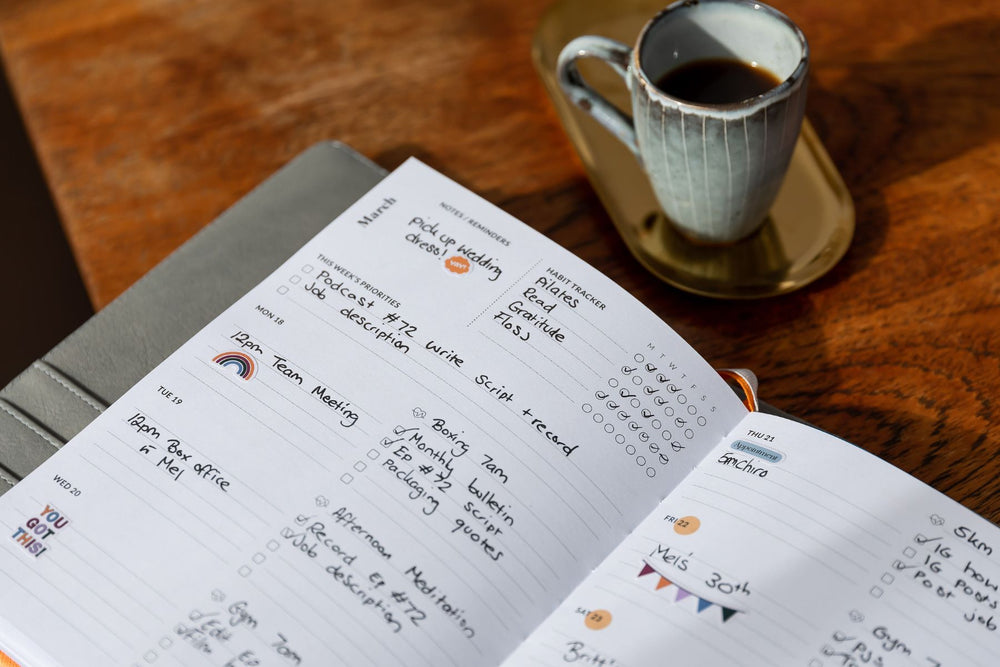 March
NOTES / REMINDERS
Pick up Wedding
dress!
YAY!
HABIT TRACKER
Pilates
Read
Gratitude
Floss
M T W T F S S
THIS WEEK'S PRIORITIES
Podcast #72 write script + record
Job description
MON 18
12pm Team Meeting
Boxing 7am
Monthly bulletin
Ep #72 script
Packaging quotes
TUE 19
12pm Box office
Mel
Afternoon Meditation
Record Ep #72
Job description
WED 20
YOU
GOT
THIS!
Gym 7am
Edit Ep
THU 21
Appointment
5pm Chiro
5km
IG
IG posts
Post job
FRI 22
Mel's 30th
Gym
SAT 23
Britt'